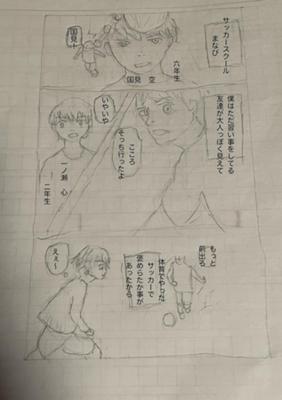 サッカースクール
まなび
六年生
国見 空
国見ー
僕はただ習い事をしてる
友達が大人っぽく見えて
いやいや
こころ
そっち行ったよ
一ノ瀬 心
二年生
もっと
前出ろ
体育でやった
サッカーで
褒めらたか事が
あったから
えぇ〜